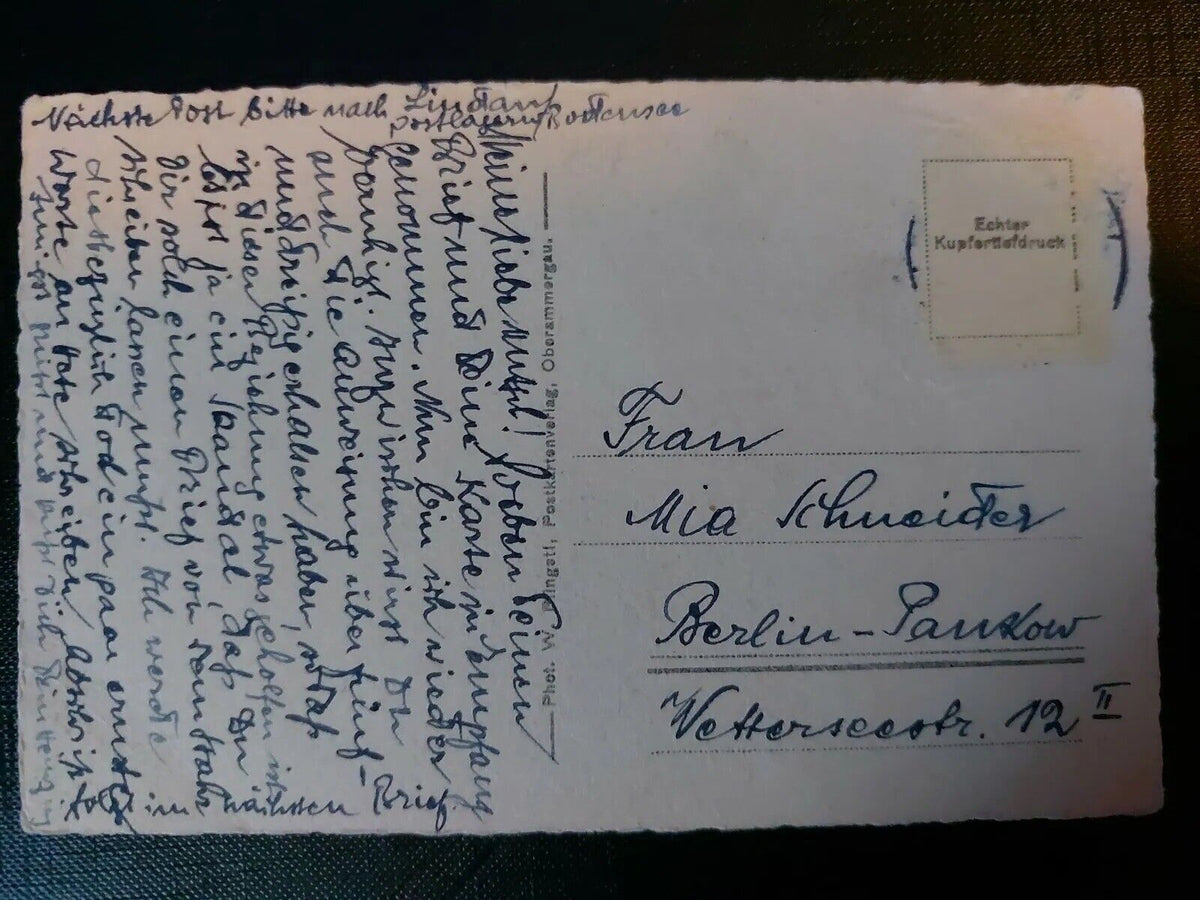 Nächste Post bitte nach Lindau
postlagernd Bodensee
Meine liebe Mutzl! Soeben Deinen
Brief und Deine Karte in Empfang
genommen. Nun bin ich wieder
beruhigt. Inzwischen wirst Du
auch die Anweisung über fünf-
unddreißig erhalten haben, sodaß
in dieser Beziehung etwas geholfen ist
Es ist ja ein Skandal, daß Du
Dir solch einen Brief von
schreiben lassen mußt. Ich werde
diesbezüglich Tod ein paar ernste
Worte an schreiben,
innigst grüßt und küßt Dich Dein
im nächsten Brief
Phot. W. Postkartenverlag, Oberammergau.
Echter
Kupfertiefdruck
Frau
Mia Schneider
Berlin-Pankow
Wetterseestr. 12 II